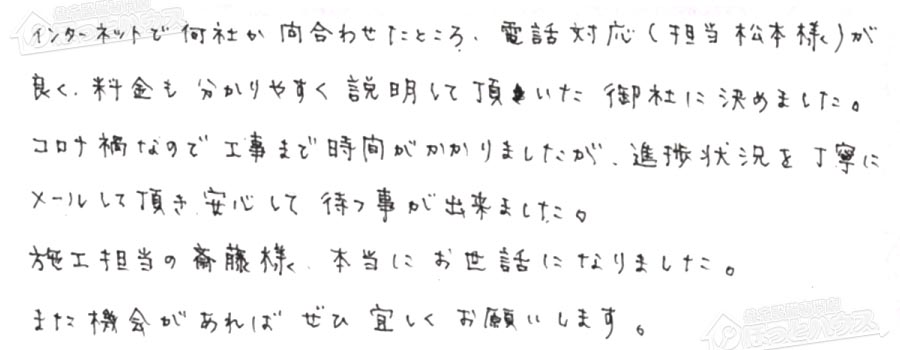 インターネットで何社か問合わせたところ、電話対応(担当松本様)が
良く、料金も分かりやすく説明して頂いた御社に決めました。
コロナ禍なので工事まで時間がかかりましたが、進捗状況を丁寧に
メールして頂き安心して待つ事が出来ました。
施工担当の斎藤様、本当にお世話になりました。
また機会があればぜひ宜しくお願いします。
ほっとハウス